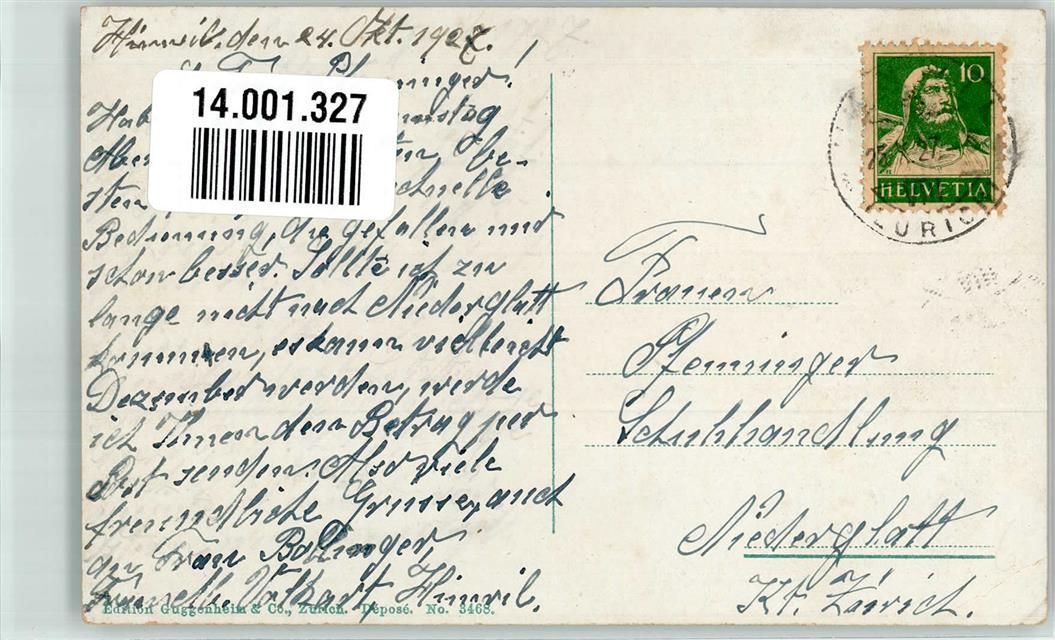 Hinwil, den 24. Okt. 1927.
Pfenninger!
14.001.327
Hab
Aben
sten schnelle
Bedienung, die gefallen mir
schon besser. Sollte ich zu
lange nicht nach Niederglatt
kommen, es kann vielleicht
Dezember werden, werde
ich Ihnen den Betrag per
Post senden. Also viele
freundliche Grüsse, auch
an Frau Bollinger,
Volkart, Hinwil.
Edition Guggenheim & Co., Zürich. Déposé. No. 3468.
10
HELVETIA
ZÜRICH
Frauen
Pfenninger
Schuhhandlung
Niederglatt
Kt. Zürich.